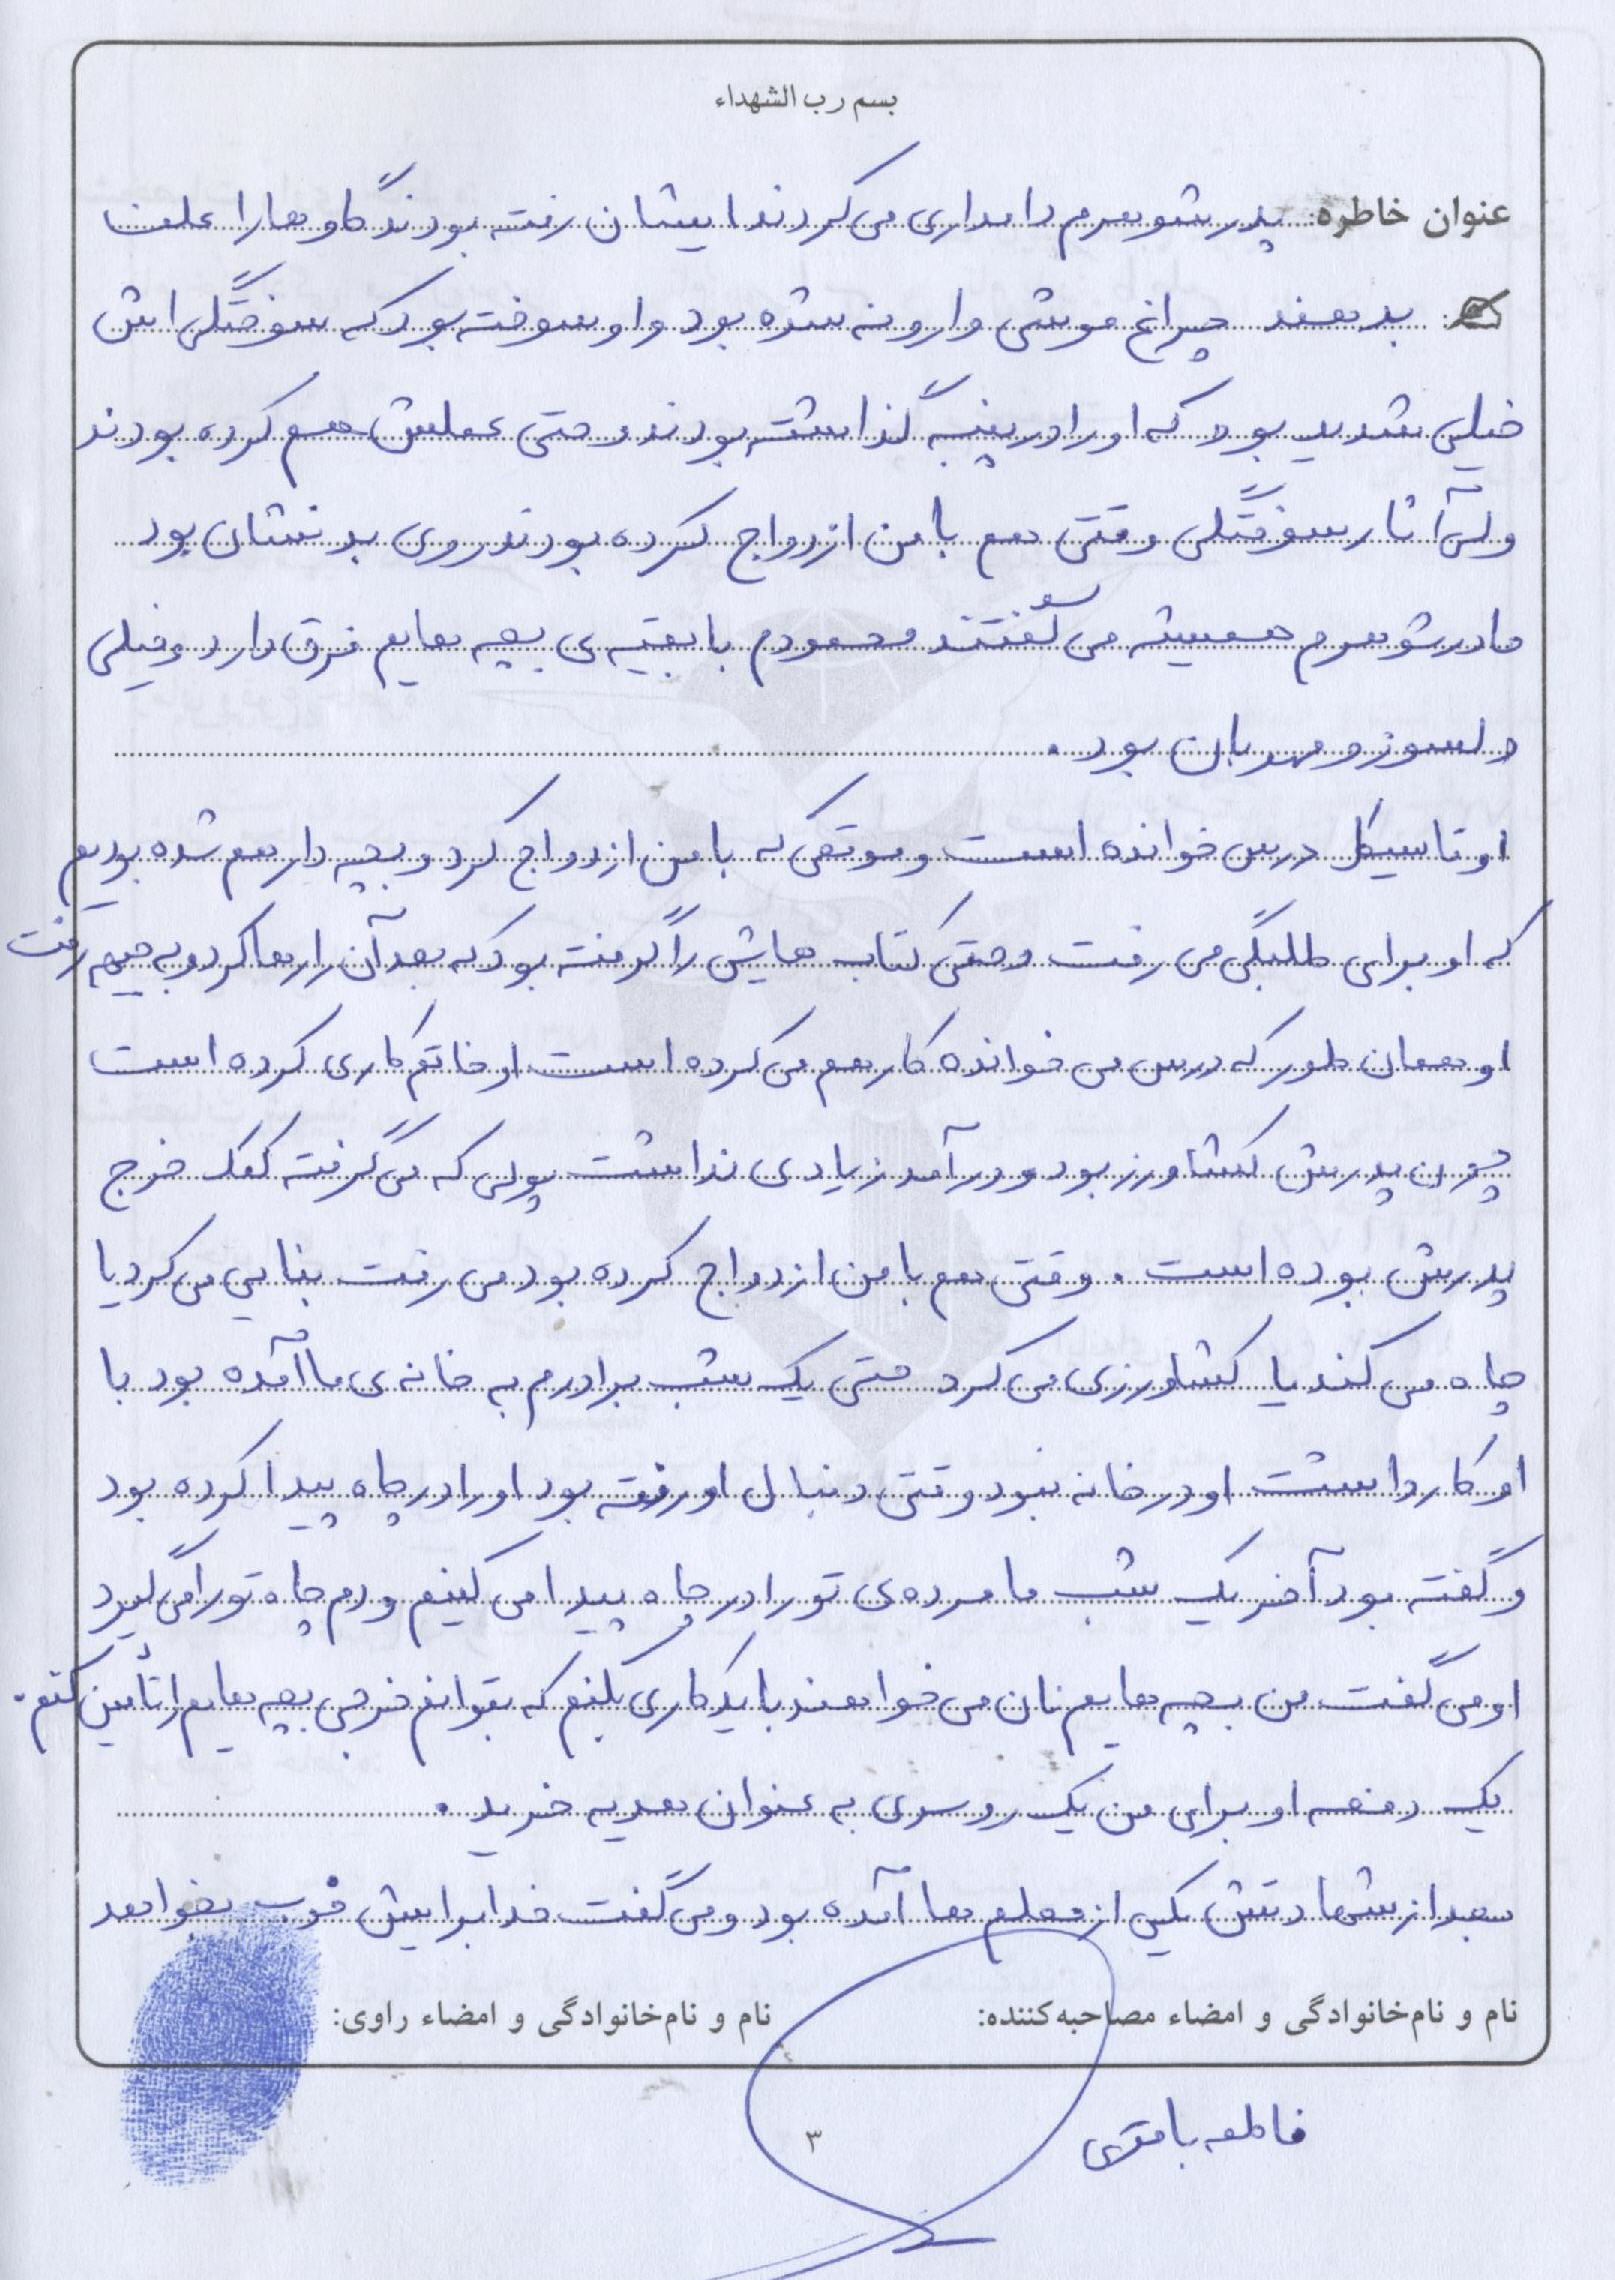 بسم رب الشهداء
عنوان خاطره: پدر شوهرم دامداری می کردند ایشان رفته بودند گاوها را علف
بدهند چراغ موشی وارونه شده بود و او سوخته بود که سوختگی اش
خیلی شدید بود که او را در پنبه گذاشته بودند و حتی عملش هم کرده بودند
ولی آثار سوختگی وقتی هم با من ازدواج کرده بودند روی بدنشان بود
مادر شوهرم همیشه می گفتند محمودم با بقیه ی بچه هایم فرق دارد و خیلی
دلسوز و مهربان بود .
او تا سیکل درس خوانده است و موقعی که با من ازدواج کرد و بچه دار هم شده بودیم
که او برای طلبگی می رفت و حتی کتاب هایش را گرفته بود که بعد آن را رها کرد و به جبهه رفت
او همان طور که درس می خوانده کار هم می کرده است او خاتم کاری کرده است
چون پدرش کشاورز بود و درآمد زیادی نداشت پولی که می گرفته کمک خرج
پدرش بوده است . وقتی هم با من ازدواج کرده بود می رفت بنایی می کرد یا
چاه می کند یا کشاورزی می کرد حتی یک شب برادرم به خانه ی ما آمده بود با
او کار داشت او در خانه نبود وقتی دنبال او رفته بود او را در چاه پیدا کرده بود
و گفته بود آخر یک شب ما مرده ی تو را در چاه پیدا می کنیم و دم چاه تو را می گیرد
او می گفت من بچه هایم نان می خواهند باید کاری بکنم که بتوانم خرجی بچه هایم را تأمین کنم .
یک دفعه او برای من یک روسری به عنوان هدیه خرید .
بعد از شهادتش یکی از معلم ها آمده بود و می گفت خدا برایش خوب بخواهد
نام و نام‌خانوادگی و امضاء مصاحبه‌کننده:
نام و نام‌خانوادگی و امضاء راوی:
فاطمه باقری
۳